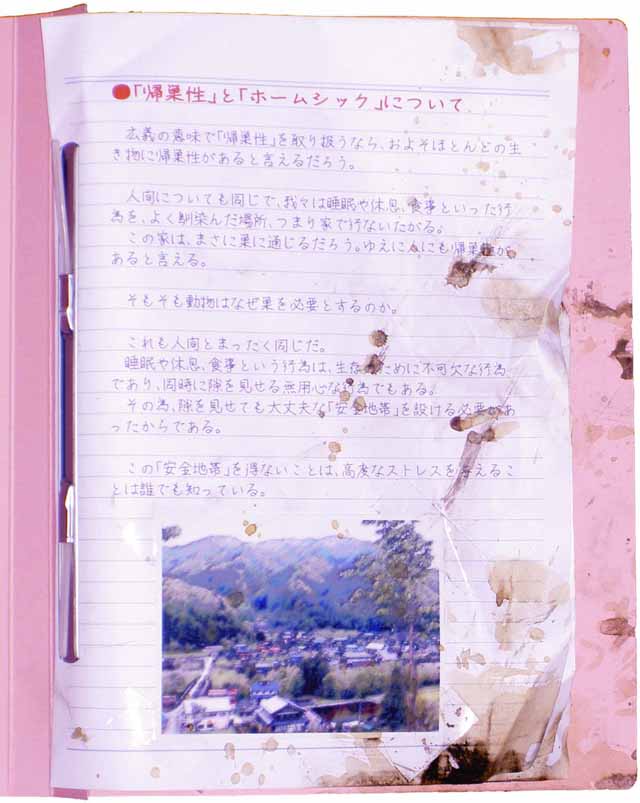 ●「帰巣性」と「ホームシック」について
広義の意味で「帰巣性」を取り扱うなら、およそほとんどの生
き物に帰巣性があると言えるだろう。
人間についても同じで、我々は睡眠や休息、食事といった行
為を、よく馴染んだ場所、つまり家で行ないたがる。
この家は、まさに巣に通じるだろう。ゆえに人にも帰巣性が
あると言える。
そもそも動物はなぜ巣を必要とするのか。
これも人間とまったく同じだ。
睡眠や休息、食事という行為は、生きるために不可欠な行為
であり、同時に隙を見せる無用心な行為でもある。
その為、隙を見せても大丈夫な「安全地帯」を設ける必要があ
ったからである。
この「安全地帯」を得ないことは、高度なストレスを与えるこ
とは誰でも知っている。